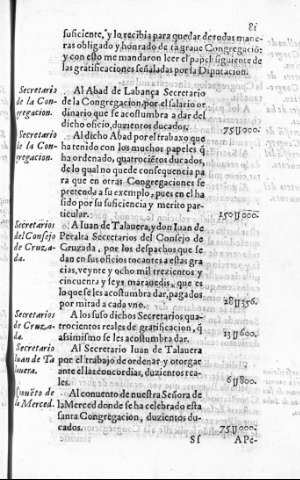 81
suficiente, y lo recibia para quedar de todas mane-
ras obligado y honrado de tã graue Congregaciõ:
y con esto me mandaron leer el papel siguiente de
las gratificaciones señaladas por la Diputacion.
Secretario de la Congregacion.
Al Abad de Labança Secretario
de la Congregacion, por el salario or
dinario que se acostumbra a dar del
dicho oficio, duzientos ducados.
75 U 000.
Secretario de la Congregacion.
Al dicho Abad por el trabaxo que
ha tenido con los muchos papeles q̃
ha ordenado, quatrociẽtos ducados,
de lo qual no quede consequencia pa
ra que en otras Congregaciones se
pretenda a su exemplo, pues en el ha
sido por su suficiencia y merito par-
ticular.
150 U 000.
Secretarios del Consejo de Cruzada.
A Iuan de Talauera, y don Iuan de
Peralta Secretarios del Consejo de
Cruzada, por los despachos que se
dan en sus oficios tocantes a estas gra
cias, veynte y ocho mil trezientos y
cincuenta y seys marauedis, que es
lo que se les acostumbra dar, pagados
por mitad a cada vno.
28 U 356.
Secretarios de Cruzada.
A los suso dichos Secretarios qua-
trocientos reales de gratificacion, q̃
assimismo se les acostumbra dar.
13 U 600.
Secretario Iuan de Talauera.
Al Secretario Iuan de Talauera
por el trabajo de ordenar y otorgar
ante el las concordias, duzientos rea-
les.
6 U 800.
Conuẽto de la Merced.
Al conuento de nuestra Señora de
la Merced donde se ha celebrado esta
santa Congregacion, duzientos du-
cados.
75 U 000.
Sf
A Pe-